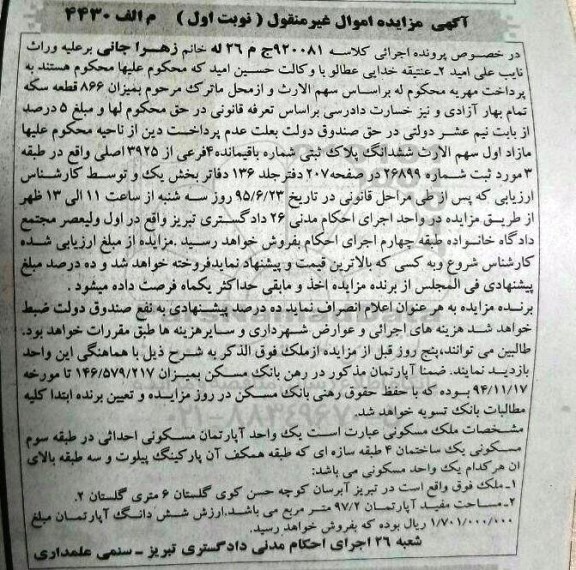 آگهی مزایده اموال غیرمنقول ( نوبت اول ) م الف ۴۴۳۰
در خصوص پرونده اجرائی کلاسه ۹۲۰۰۸۱ج م ۲۶ له خانم زهرا جانی برعلیه وراث
نایب علی امید ۲ـ عتیقه خدایی عطالو با وکالت حسین امید که محکوم علیها محکوم هستند به
پرداخت مهریه محکوم له براساس سهم الارث و ازمحل ماترک مرحوم بمیزان ۸۶۶ قطعه سکه
تمام بهار آزادی و نیز خسارت دادرسی براساس تعرفه قانونی در حق محکوم لها و مبلغ ۵ درصد
از بابت نیم عشر دولتی در حق صندوق دولت بعلت عدم پرداخت دین از ناحیه محکوم علیها
مازاد اول سهم الارث ششدانگ پلاک ثبتی شماره باقیمانده۴فرعی از ۳۹۲۵ اصلی واقع در طبقه
۳مورد ثبت شماره ۲۶۸۹۹ در صفحه۲۰۷ دفترجلد ۱۳۶ دفاتر بخش یک و توسط کارشناس
ارزیابی که پس از طی مراحل قانونی در تاریخ ۹۵/۶/۲۳ روز سه شنبه از ساعت ۱۱ الی ۱۳ ظهر
از طریق مزایده در واحد اجرای احکام مدنی ۲۶ دادگستری تبریز واقع در اول ولیعصر مجتمع
دادگاه خانواده طبقه چهارم اجرای احکام بفروش خواهد رسید .مزایده از مبلغ ارزیابی شده
کارشناس شروع وبه کسی که بالاترین قیمت و پیشنهاد نمایدفروخته خواهد شد و ده درصد مبلغ
پیشنهادی فی المجلس از برنده مزایده اخذ و مابقی حداکثر یکماه فرصت داده میشود .
برنده مزایده به هر عنوان اعلام انصراف نماید ده درصد پیشنهادی به نفع صندوق دولت ضبط
خواهد شد هزینه های اجرائی و عوارض شهرداری و سایرهزینه ها طبق مقررات خواهد بود.
طالبین می توانند،پنج روز قبل از مزایده ازملک فوق الذکر به شرح ذیل با هماهنگی این واحد
بازدید نمایند. ضمنا آپارتمان مذکور در رهن بانک مسکن بمیزان ۱۴۶/۵۷۹/۲۱۷ تا مورخه
۹۴/۱۱/۱۷ بوده که با حفظ حقوق رهنی بانک مسکن در روز مزایده و تعیین برنده ابتدا کلیه
مطالبات بانک تسویه خواهد شد.
مشخصات ملک مسکونی عبارت است یک واحد آپارتمان مسکونی احداثی در طبقه سوم
مسکونی یک ساختمان ۴ طبقه سازه ای که طبقه همکف آن پارکینگ پیلوت و سه طبقه بالای
ان هرکدام یک واحد مسکونی می باشد:
۱ـ ملک فوق واقع است در تبریز آبرسان کوچه حسن کوی گلستان ۶ متری گلستان ۲.
۲ـ مساحت مفید آپارتمان ۹۷/۲ متر مربع می باشد.ارزش شش دانگ آپارتمان مبلغ
۱/۷۰۱/۰۰۰/۰۰۰ ریال بوده که بفروش خواهد رسید.
شعبه ۲۶ اجرای احکام مدنی دادگستری تبریز ـ سنمی علمداری